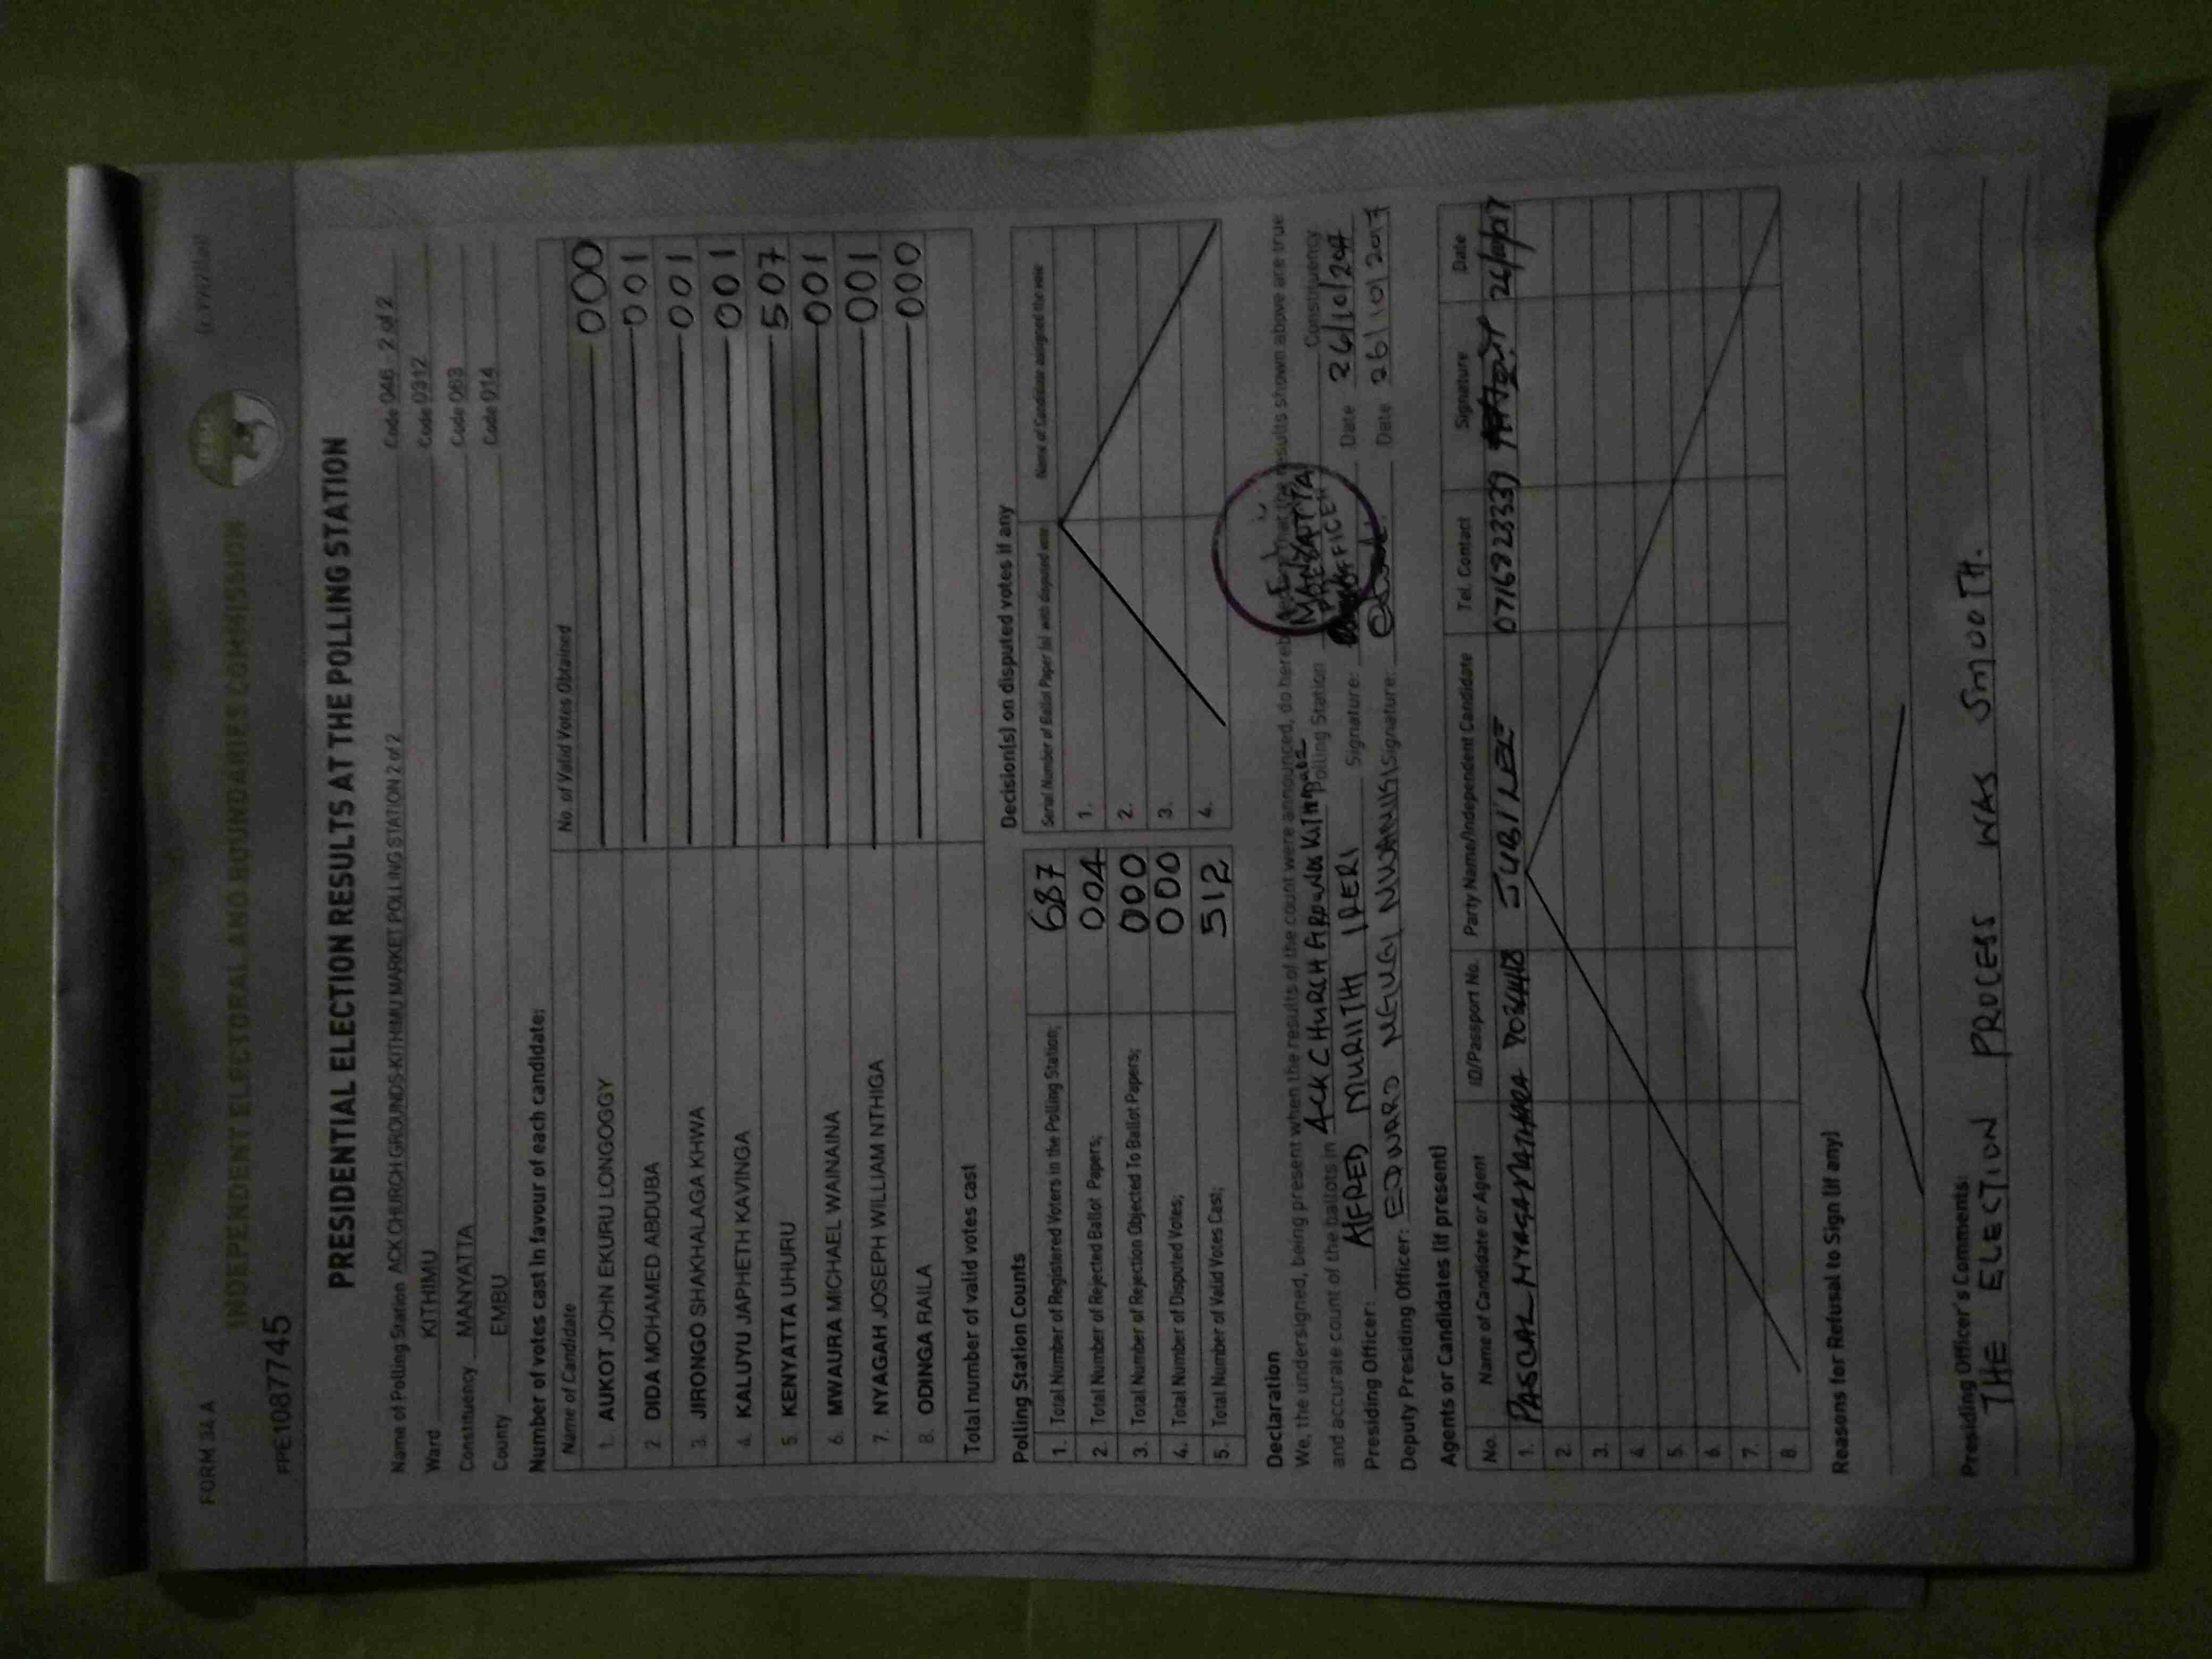 FORM 34 A
INDEPENDENT ELECTORAL AND BOUNDARIES COMMISSION
PPE1087745
PRESIDENTIAL ELECTION RESULTS AT THE POLLING STATION
Name of Polling Station ACK CHURCH GROUNDS-KITHIMU MARKET POLLING STATION 2 of 2 Code 046 2 of 2
Ward KITHIMU Code 0312
Constituency MANYATTA Code 063
County EMBU Code 014
Number of votes cast in favour of each candidate:
Name of Candidate No. of Valid Votes Obtained
1. AUKOT JOHN EKURU LONGOGGY 000
2. DIDA MOHAMED ABDUBA 001
3. JIRONGO SHAKHALAGA KHWA 001
4. KALUYU JAPHETH KAVINGA 001
5. KENYATTA UHURU 507
6. MWAURA MICHAEL WAINAINA 001
7. NYAGAH JOSEPH WILLIAM NTHIGA 001
8. ODINGA RAILA 000
Total number of valid votes cast
Polling Station Counts
1. Total Number of Registered Voters in the Polling Station; 687
2. Total Number of Rejected Ballot Papers; 004
3. Total Number of Rejection Objected To Ballot Papers; 000
4. Total Number of Disputed Votes; 000
5. Total Number of Valid Votes Cast; 512
Decision(s) on disputed votes if any
Serial Number of Ballot Paper (s) with disputed vote Name of Candidate assigned the vote
1.
2.
3.
4.
Declaration
We, the undersigned, being present when the results of the count were announced, do hereby that the results shown above are true
and accurate count of the ballots in ACK CHURCH GROUNDS Polling Station MANYATTA Constituency
Presiding Officer: ALFRED MURIITHI IRERI Signature: Date 26/10/2017
Deputy Presiding Officer: EDWARD NGUGI Signature: Date 26/10/2017
Agents or Candidates (if present)
No. Name of Candidate or Agent ID/Passport No. Party Name/Independent Candidate Tel. Contact Signature Date
1. PASCAL JUBILEE
2.
3.
4.
5.
6.
7.
8.
Reasons for Refusal to Sign (if any)
Presiding Officer's Comments:
THE ELECTION PROCESS WAS SMOOTH.